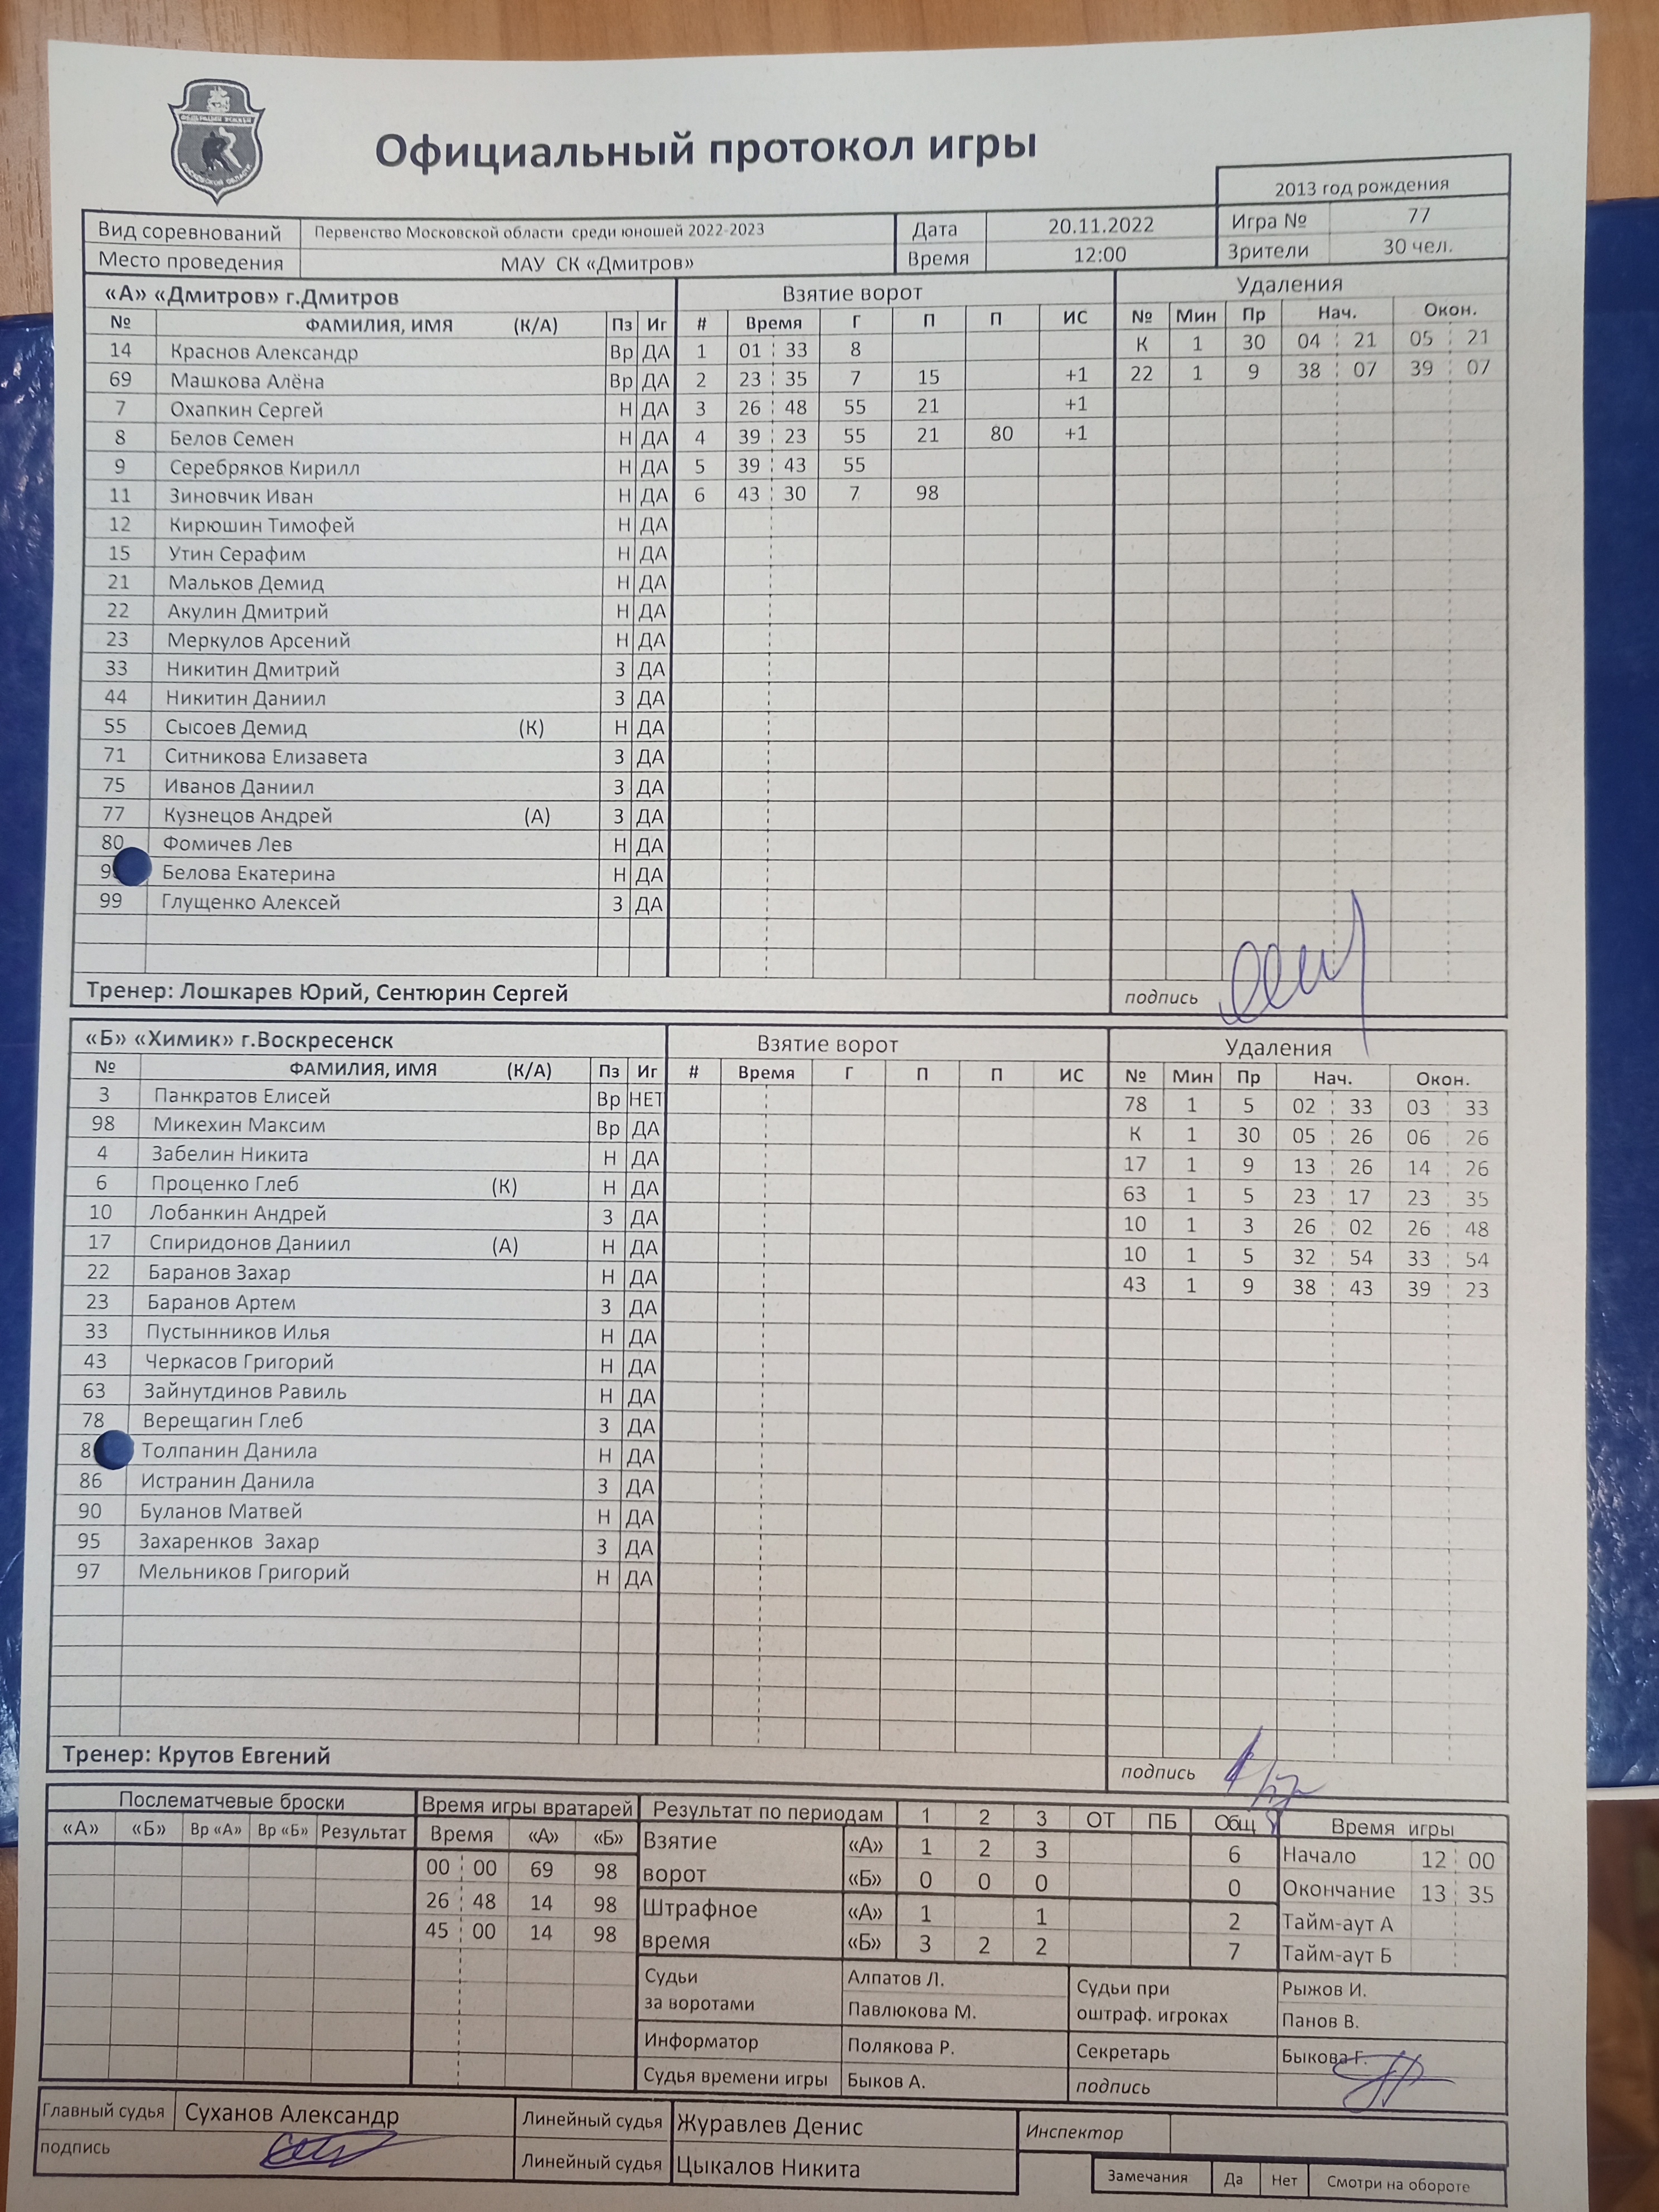 Официальный протокол игры
2013 год рождения
Вид соревнований Первенство Московской области среди юношей 2022-2023 Дата 20.11.2022 Игра № 77
Место проведения МАУ СК «Дмитров» Время 12:00 Зрители 30 чел.
«А» «Дмитров» г.Дмитров Взятие ворот Удаления
№ ФАМИЛИЯ, ИМЯ (К/А) Пз Иг # Время Г П П ИС № Мин Пр Нач. Окон.
14 Краснов Александр Вр ДА 1 01 33 8 К 1 30 04 21 05 21
69 Машкова Алёна Вр ДА 2 23 35 7 15 +1 22 1 9 38 07 39 07
7 Охапкин Сергей Н ДА 3 26 48 55 21 +1
8 Белов Семен Н ДА 4 39 23 55 21 80 +1
9 Серебряков Кирилл Н ДА 5 39 43 55
11 Зиновчик Иван Н ДА 6 43 30 7 98
12 Кирюшин Тимофей Н ДА
15 Утин Серафим Н ДА
21 Мальков Демид Н ДА
22 Акулин Дмитрий Н ДА
23 Меркулов Арсений Н ДА
33 Никитин Дмитрий З ДА
44 Никитин Даниил З ДА
55 Сысоев Демид (К) Н ДА
71 Ситникова Елизавета З ДА
75 Иванов Даниил З ДА
77 Кузнецов Андрей (А) З ДА
80 Фомичев Лев Н ДА
Белова Екатерина Н ДА
99 Глущенко Алексей З ДА
Тренер: Лошкарев Юрий, Сентюрин Сергей подпись
«Б» «Химик» г.Воскресенск Взятие ворот Удаления
№ ФАМИЛИЯ, ИМЯ (К/А) Пз Иг # Время Г П П ИС № Мин Пр Нач. Окон.
3 Панкратов Елисей Вр НЕТ 78 1 5 02 33 03 33
98 Микехин Максим Вр ДА К 1 30 05 26 06 26
4 Забелин Никита Н ДА 17 1 9 13 26 14 26
6 Проценко Глеб (К) Н ДА 63 1 5 23 17 23 35
10 Лобанкин Андрей З ДА 10 1 3 26 02 26 48
17 Спиридонов Даниил (А) Н ДА 10 1 5 32 54 33 54
22 Баранов Захар Н ДА 43 1 9 38 43 39 23
23 Баранов Артем З ДА
33 Пустынников Илья Н ДА
43 Черкасов Григорий Н ДА
63 Зайнутдинов Равиль Н ДА
78 Верещагин Глеб З ДА
Толпанин Данила Н ДА
86 Истранин Данила З ДА
90 Буланов Матвей Н ДА
95 Захаренков Захар З ДА
97 Мельников Григорий Н ДА
Тренер: Крутов Евгений подпись
Послематчевые броски Время игры вратарей Результат по периодам 1 2 3 ОТ ПБ Общ Время игры
«А» «Б» Вр «А» Вр «Б» Результат Время «А» «Б» Взятие ворот «А» 1 2 3 6 Начало 12 00
00 00 69 98 «Б» 0 0 0 0 Окончание 13 35
26 48 14 98 Штрафное время «А» 1 1 2 Тайм-аут А
45 00 14 98 «Б» 3 2 2 7 Тайм-аут Б
Судьи за воротами Алпатов Л. Судьи при оштраф. игроках Рыжов И.
Павлюкова М. Панов В.
Информатор Полякова Р. Секретарь Быкова Г.
Судья времени игры Быков А. подпись
Главный судья Суханов Александр Линейный судья Журавлев Денис Инспектор
подпись Линейный судья Цыкалов Никита Замечания Да Нет Смотри на обороте